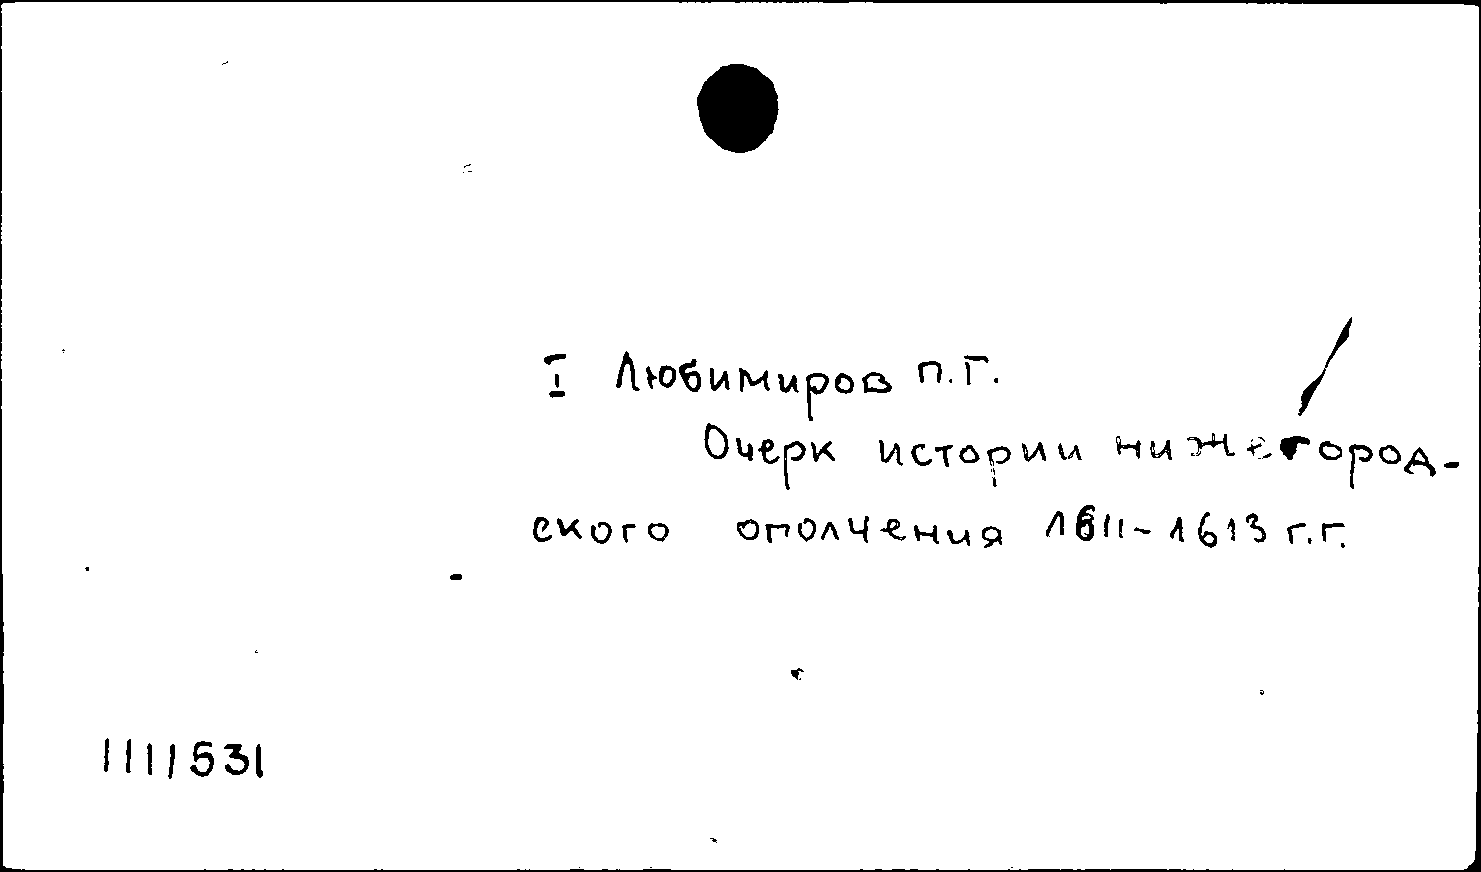 I Любимиров П.Г.
Очерк истории нижегород-
ского ополчения 1611-1613 г.г.
1111531